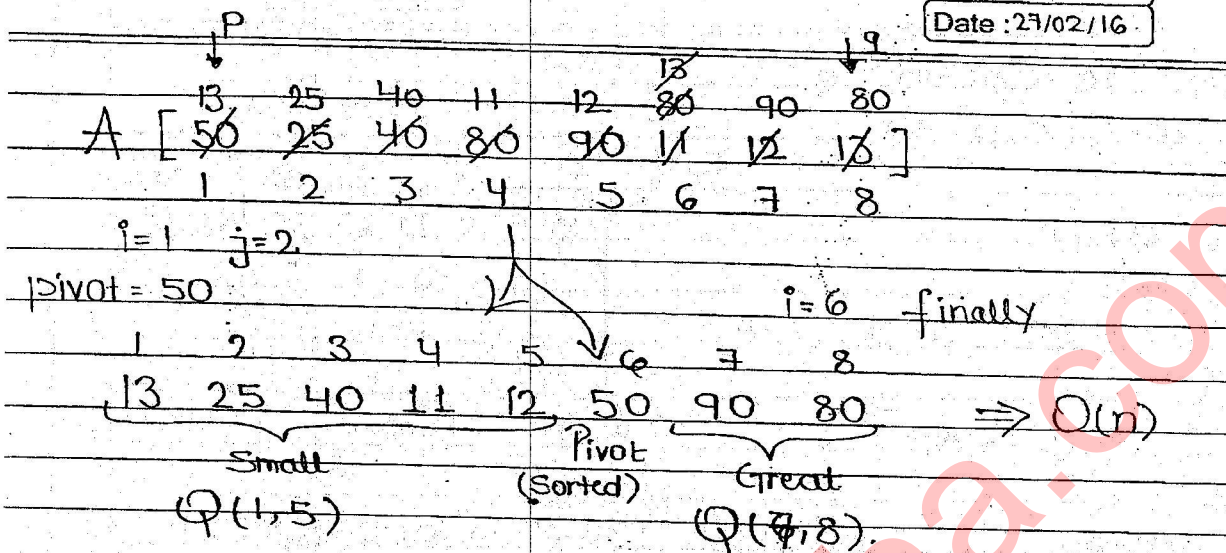 Date : 27/02/16
P q
13
13 25 40 11 12 80 90 80
A [ 50 25 40 80 90 11 12 13 ]
1 2 3 4 5 6 7 8
i=1 j=2
pivot = 50 i=6 finally
1 2 3 4 5 6 7 8
13 25 40 11 12 50 90 80 ⇒ O(n)
Small Pivot (Sorted) Great
Q(1,5) Q(7,8).